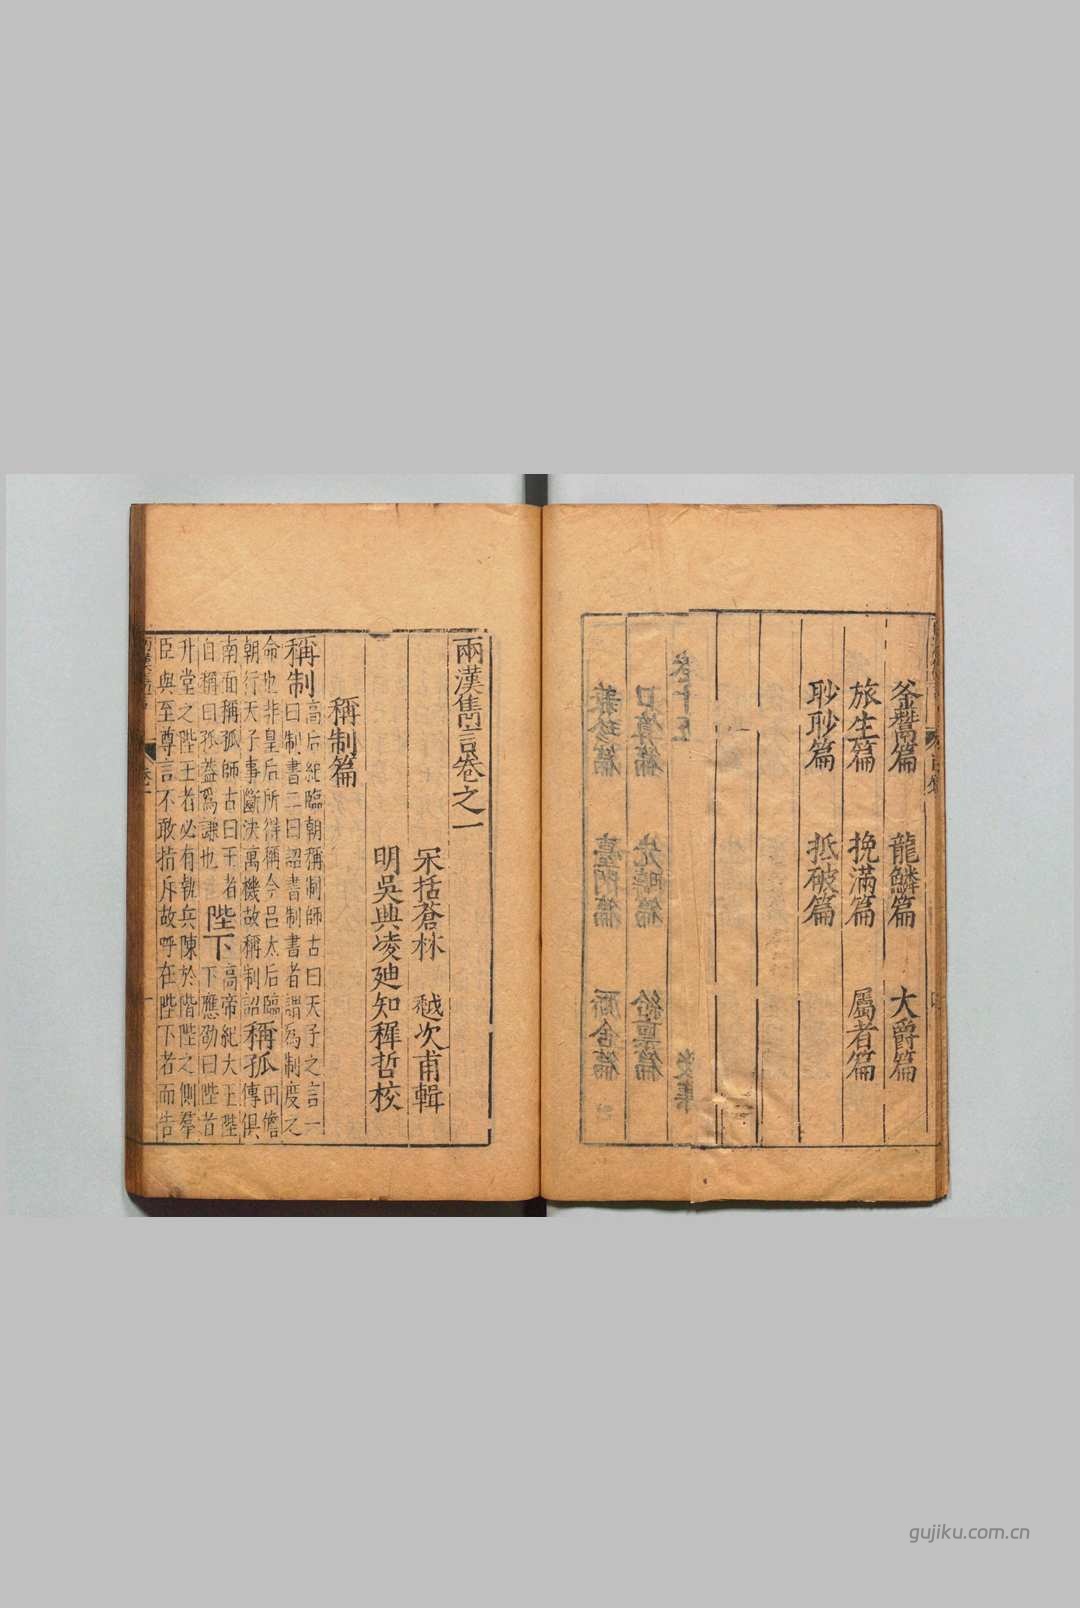 釜鬵篇 龍鱗篇 大爵篇
旅生篇 挽滿篇 屬者篇
耿耿篇 抵破篇
兩漢雋言卷之一
宋括蒼林 越次甫輯
明吳興凌廸知穉哲校
稱制篇
稱制 高后紀臨朝稱制師古曰天子之言一
曰制書二曰詔書制書者謂爲制度之
命也非皇后所得稱今呂太后臨
朝行天子事斷決萬機故稱制詔 稱孤 田儋
傳俱
南面稱孤師古曰王者
自稱曰孤蓋爲謙也 陛下 高帝紀大王陛
下應劭曰陛者
升堂之陛王者必有執兵陳於階陛之側羣
臣與至尊言不敢指斥故呼在陛下者而告
gujiku.com.cn